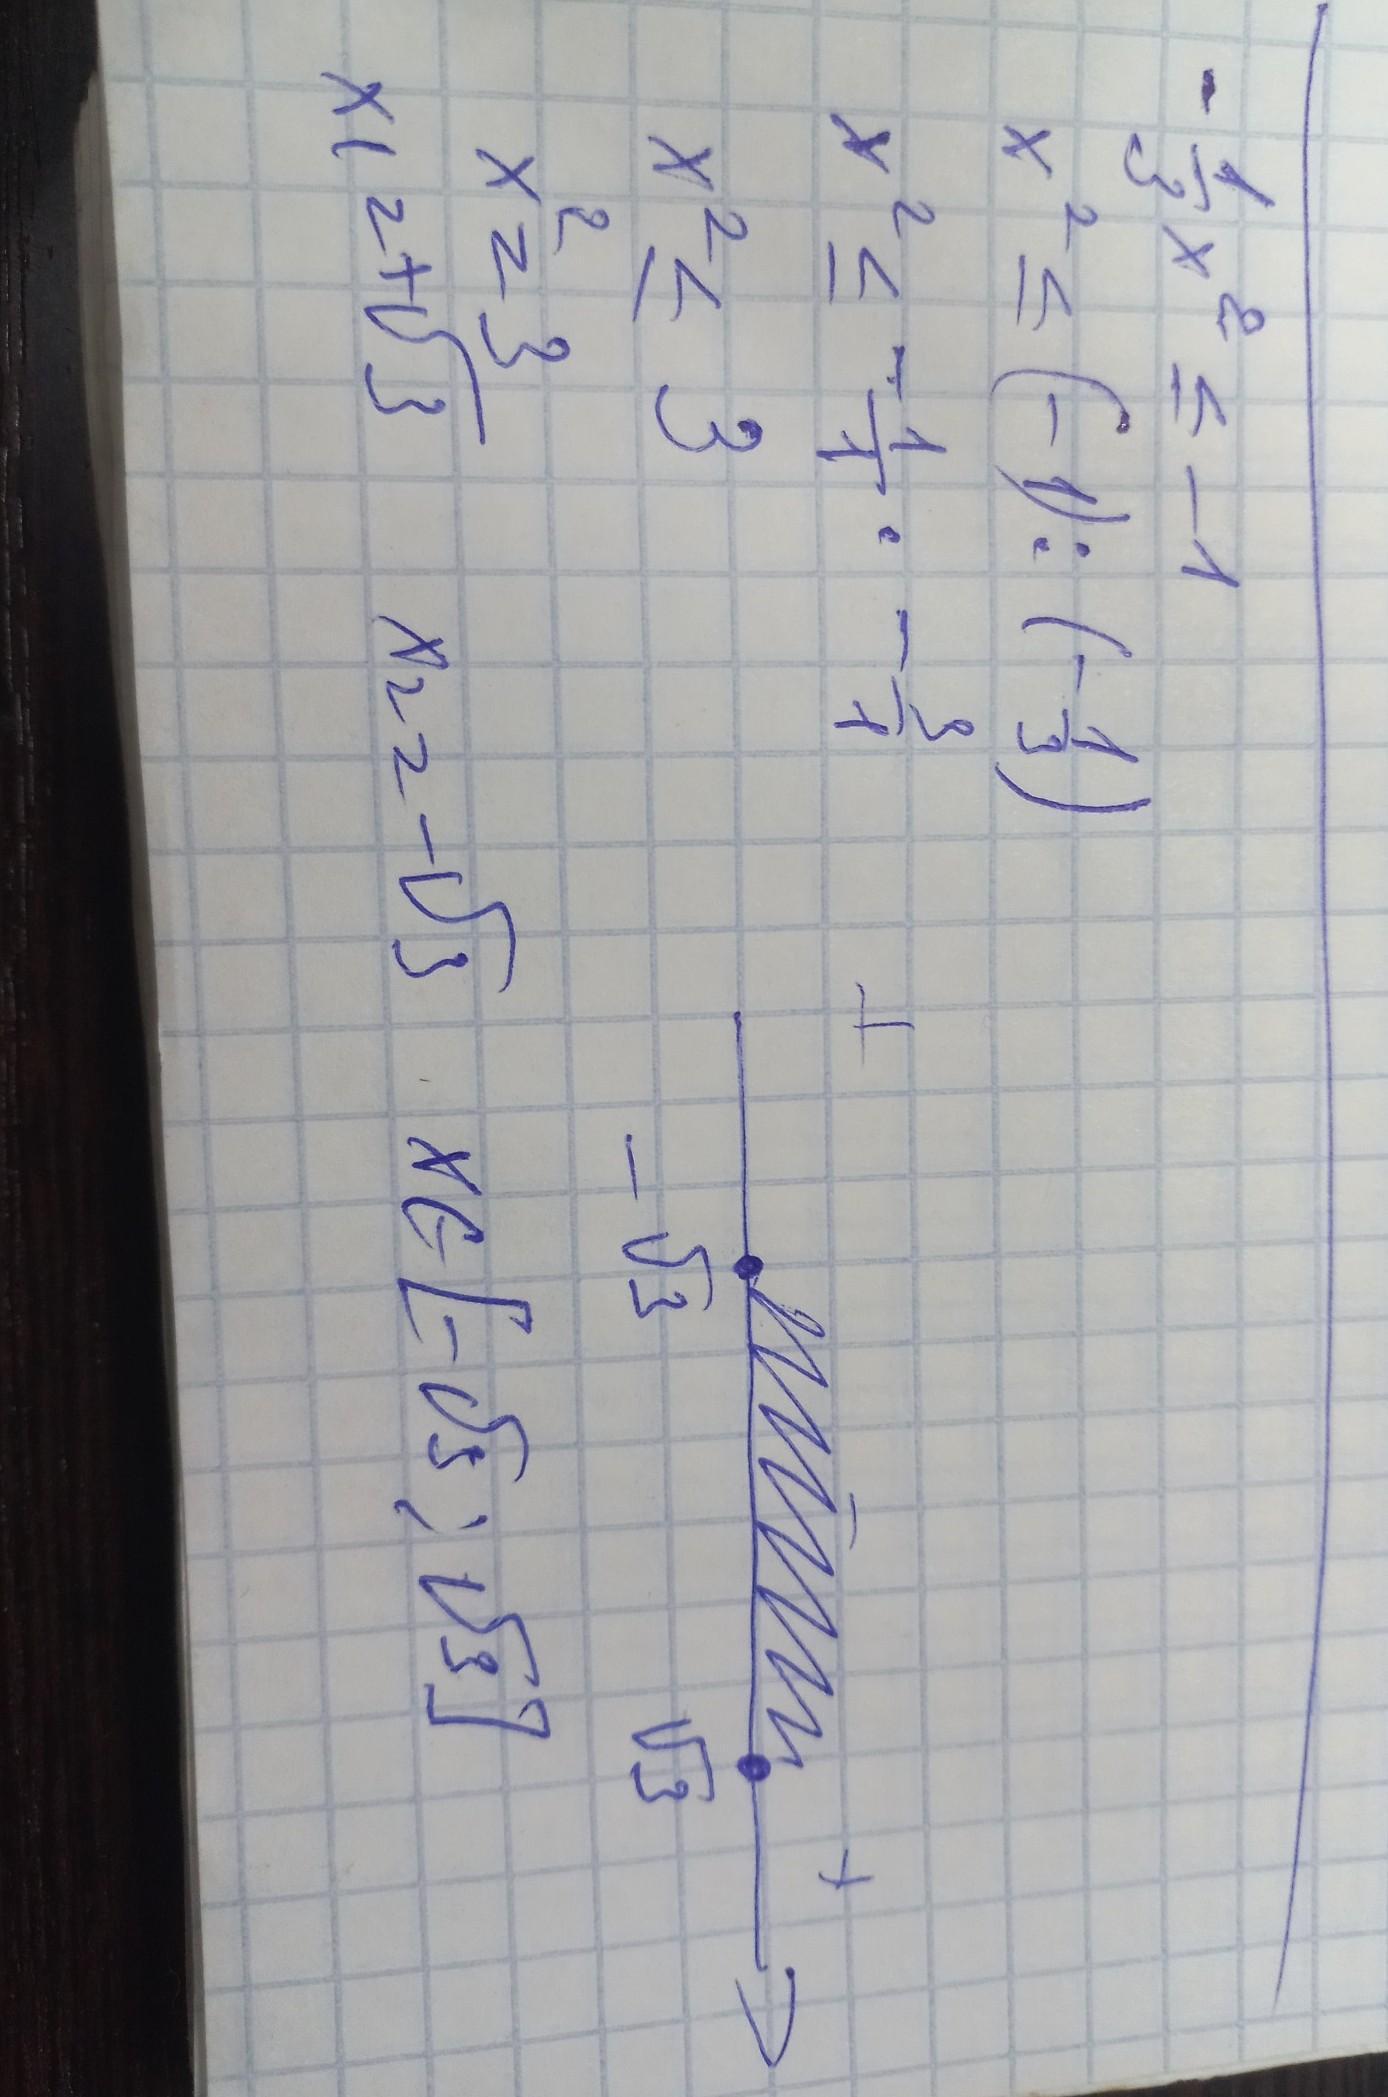 -1/3 x² ≤ -1
x² ≤ (-1) : (-1/3)
x² ≤ -1/1 · -3/1
x² ≤ 3
+ - +
-√3 √3
x² = 3
x1 = +√3 x2 = -√3 x∈[-√3; √3]